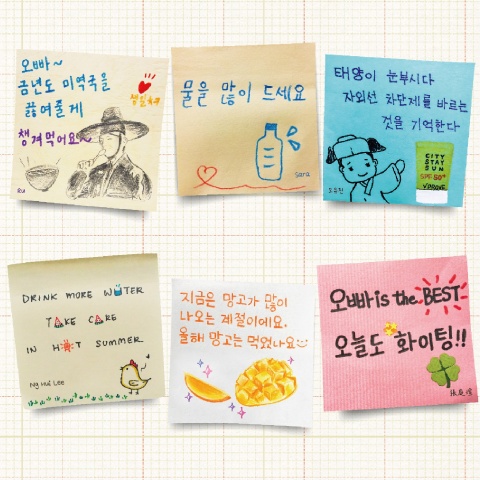 오빠~
금년도 미역국을
끓여줄게
챙겨먹어요~
Rui
물을 많이 드세요
Sara
태양이 눈부시다
자외선 차단제를 바르는
것을 기억한다
CITY
STAY
SUN
SPF 50+
DRINK MORE WATER
TAKE CARE
IN HOT SUMMER
Ng Hui Lee
지금은 망고가 많이
나오는 계절이에요.
올해 망고는 먹었나요
오빠 is the BEST
오늘도 화이팅!!